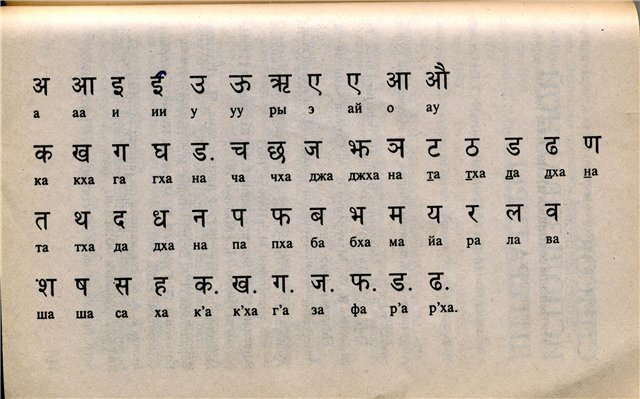 अ आ इ ई उ ऊ ऋ ए ए आ औ
а аа и ии у уу ры э ай о ау
क ख ग घ ड. च छ ज झ ञ ट ठ ड ढ ण
ка кха га гха на ча чха джа джха на та тха да дха на
त थ द ध न प फ ब भ म य र ल व
та тха да дха на па пха ба бха ма йа ра ла ва
श ष स ह क. ख. ग. ज. फ. ड. ढ.
ша ша са ха к'а к'ха г'а за фа р'а р'ха.